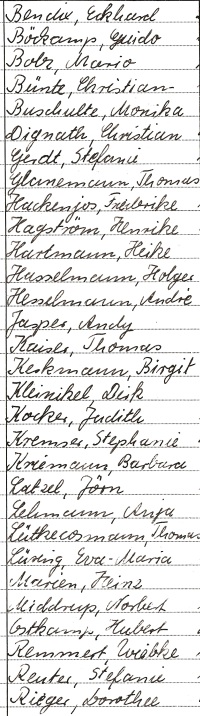 Bendix, Eckhard
Böckamp, Guido
Bolz, Mario
Bünte, Christian
Buschulte, Monika
Dignath, Christian
Gerdt, Stefanie
Glanemann, Thomas
Hackenjos, Frederike
Hagström, Henrike
Hartmann, Heike
Hasselmann, Holger
Hesselmann, André
Jasper, Andy
Kaiser, Thomas
Keskmann, Birgit
Kleinikel, Dirk
Kocker, Judith
Kremser, Stephanie
Kriemann, Barbara
Latzel, Jörn
Lehmann, Anja
Lütkecosmann, Thomas
Lüsing, Eva-Maria
Marien, Heinz
Middrup, Norbert
Ostkamp, Hubert
Remmert, Wiebke
Reuter, Stefanie
Rieger, Dorothee